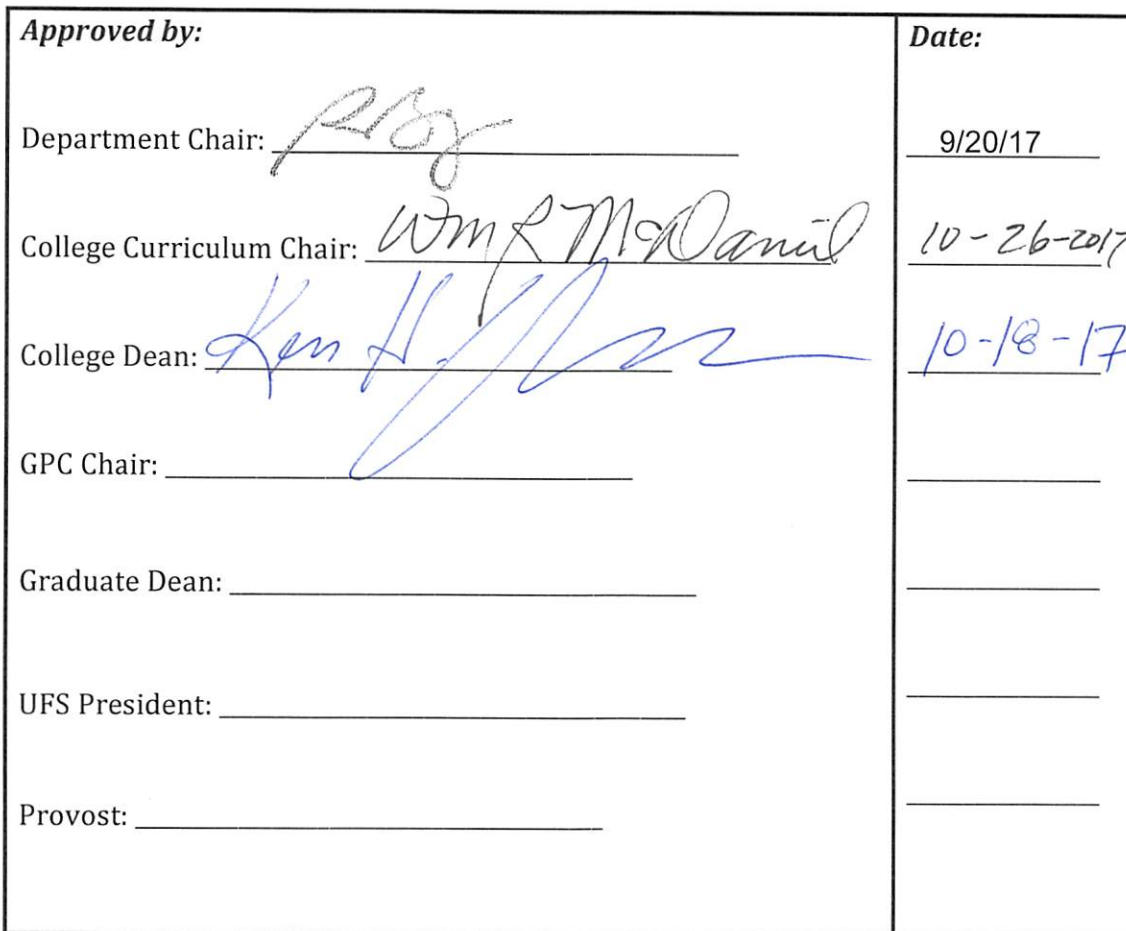 Approved by: Date:
Department Chair: 9/20/17
College Curriculum Chair: Wm R McDaniel 10-26-2017
College Dean: Ken H. 10-18-17
GPC Chair:
Graduate Dean:
UFS President:
Provost: